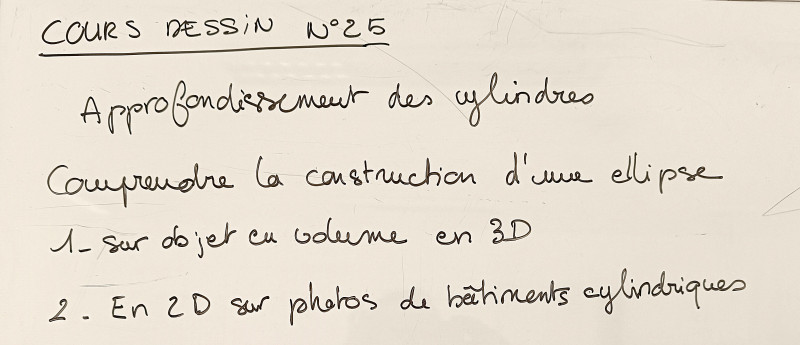 COURS DESSIN N°25
Approfondissement des cylindres
Comprendre la construction d'une ellipse
1- sur objet en volume en 3D
2. En 2D sur photos de bâtiments cylindriques